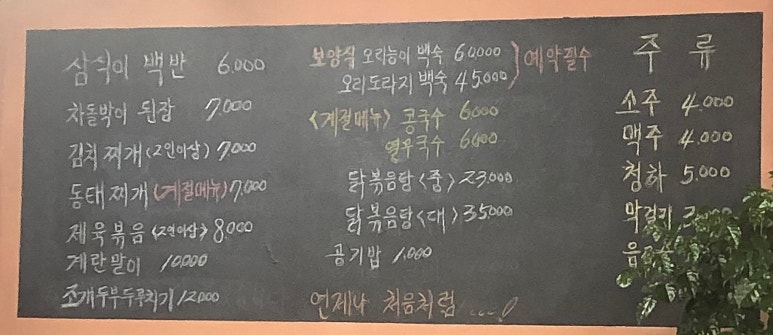 삼식이 백반 6.000
차돌박이 된장 7,000
김치찌개 <2인이상> 7,000
동태찌개 (계절메뉴) 7,000
제육볶음 <2인이상> 8,000
계란말이 10,000
조개두부두루치기 12,000
보양식 오리능이 백숙 60,000
오리도라지 백숙 45,000
예약필수
<계절메뉴> 콩국수 6000
열무국수 6000
닭볶음탕 <중> 23,000
닭볶음탕 <대> 35000
공기밥 1,000
언제나 처음처럼 ....!
주류
소주 4.000
맥주 4.000
청하 5.000
막걸리